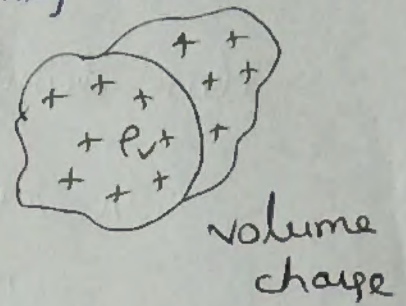 + +
+ + + + +
+ ρᵥ + +
+ + +
volume
charge